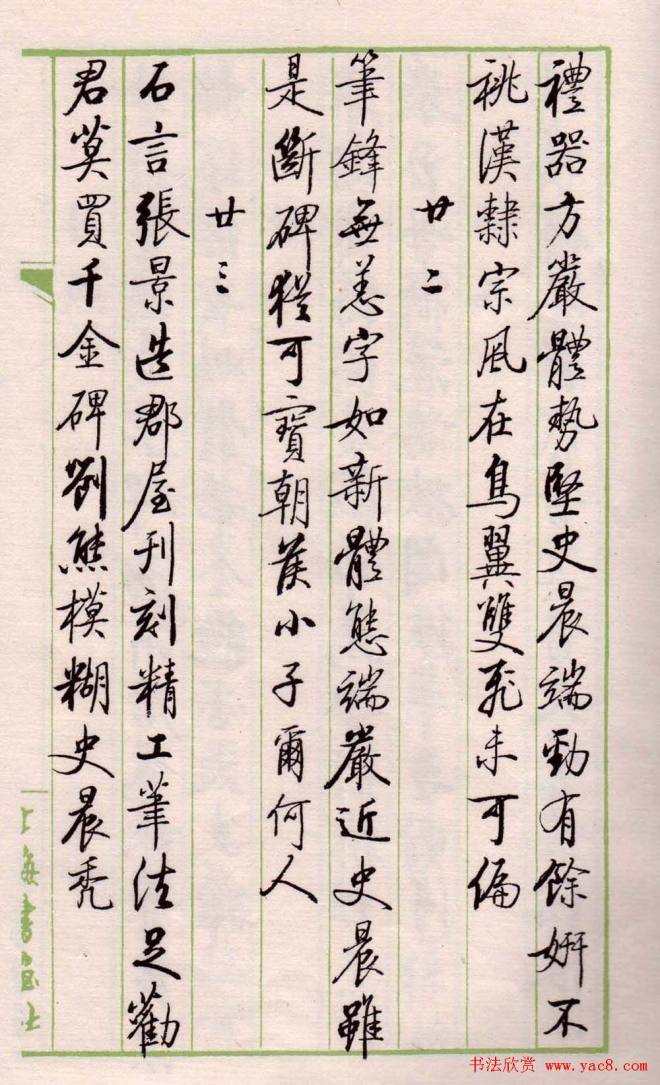 禮器方嚴體勢堅史晨端勁有餘妍不
祧漢隸宗風在鳥翼雙飛未可偏
廿二
筆鋒無恙字如新體態端嚴近史晨雖
是斷碑猶可寶朝矦小子爾何人
廿三
石言張景造郡屋刊刻精工筆法足勸
君莫買千金碑劉熊模糊史晨秃
上海書画社
书法欣赏 www.yac8.com